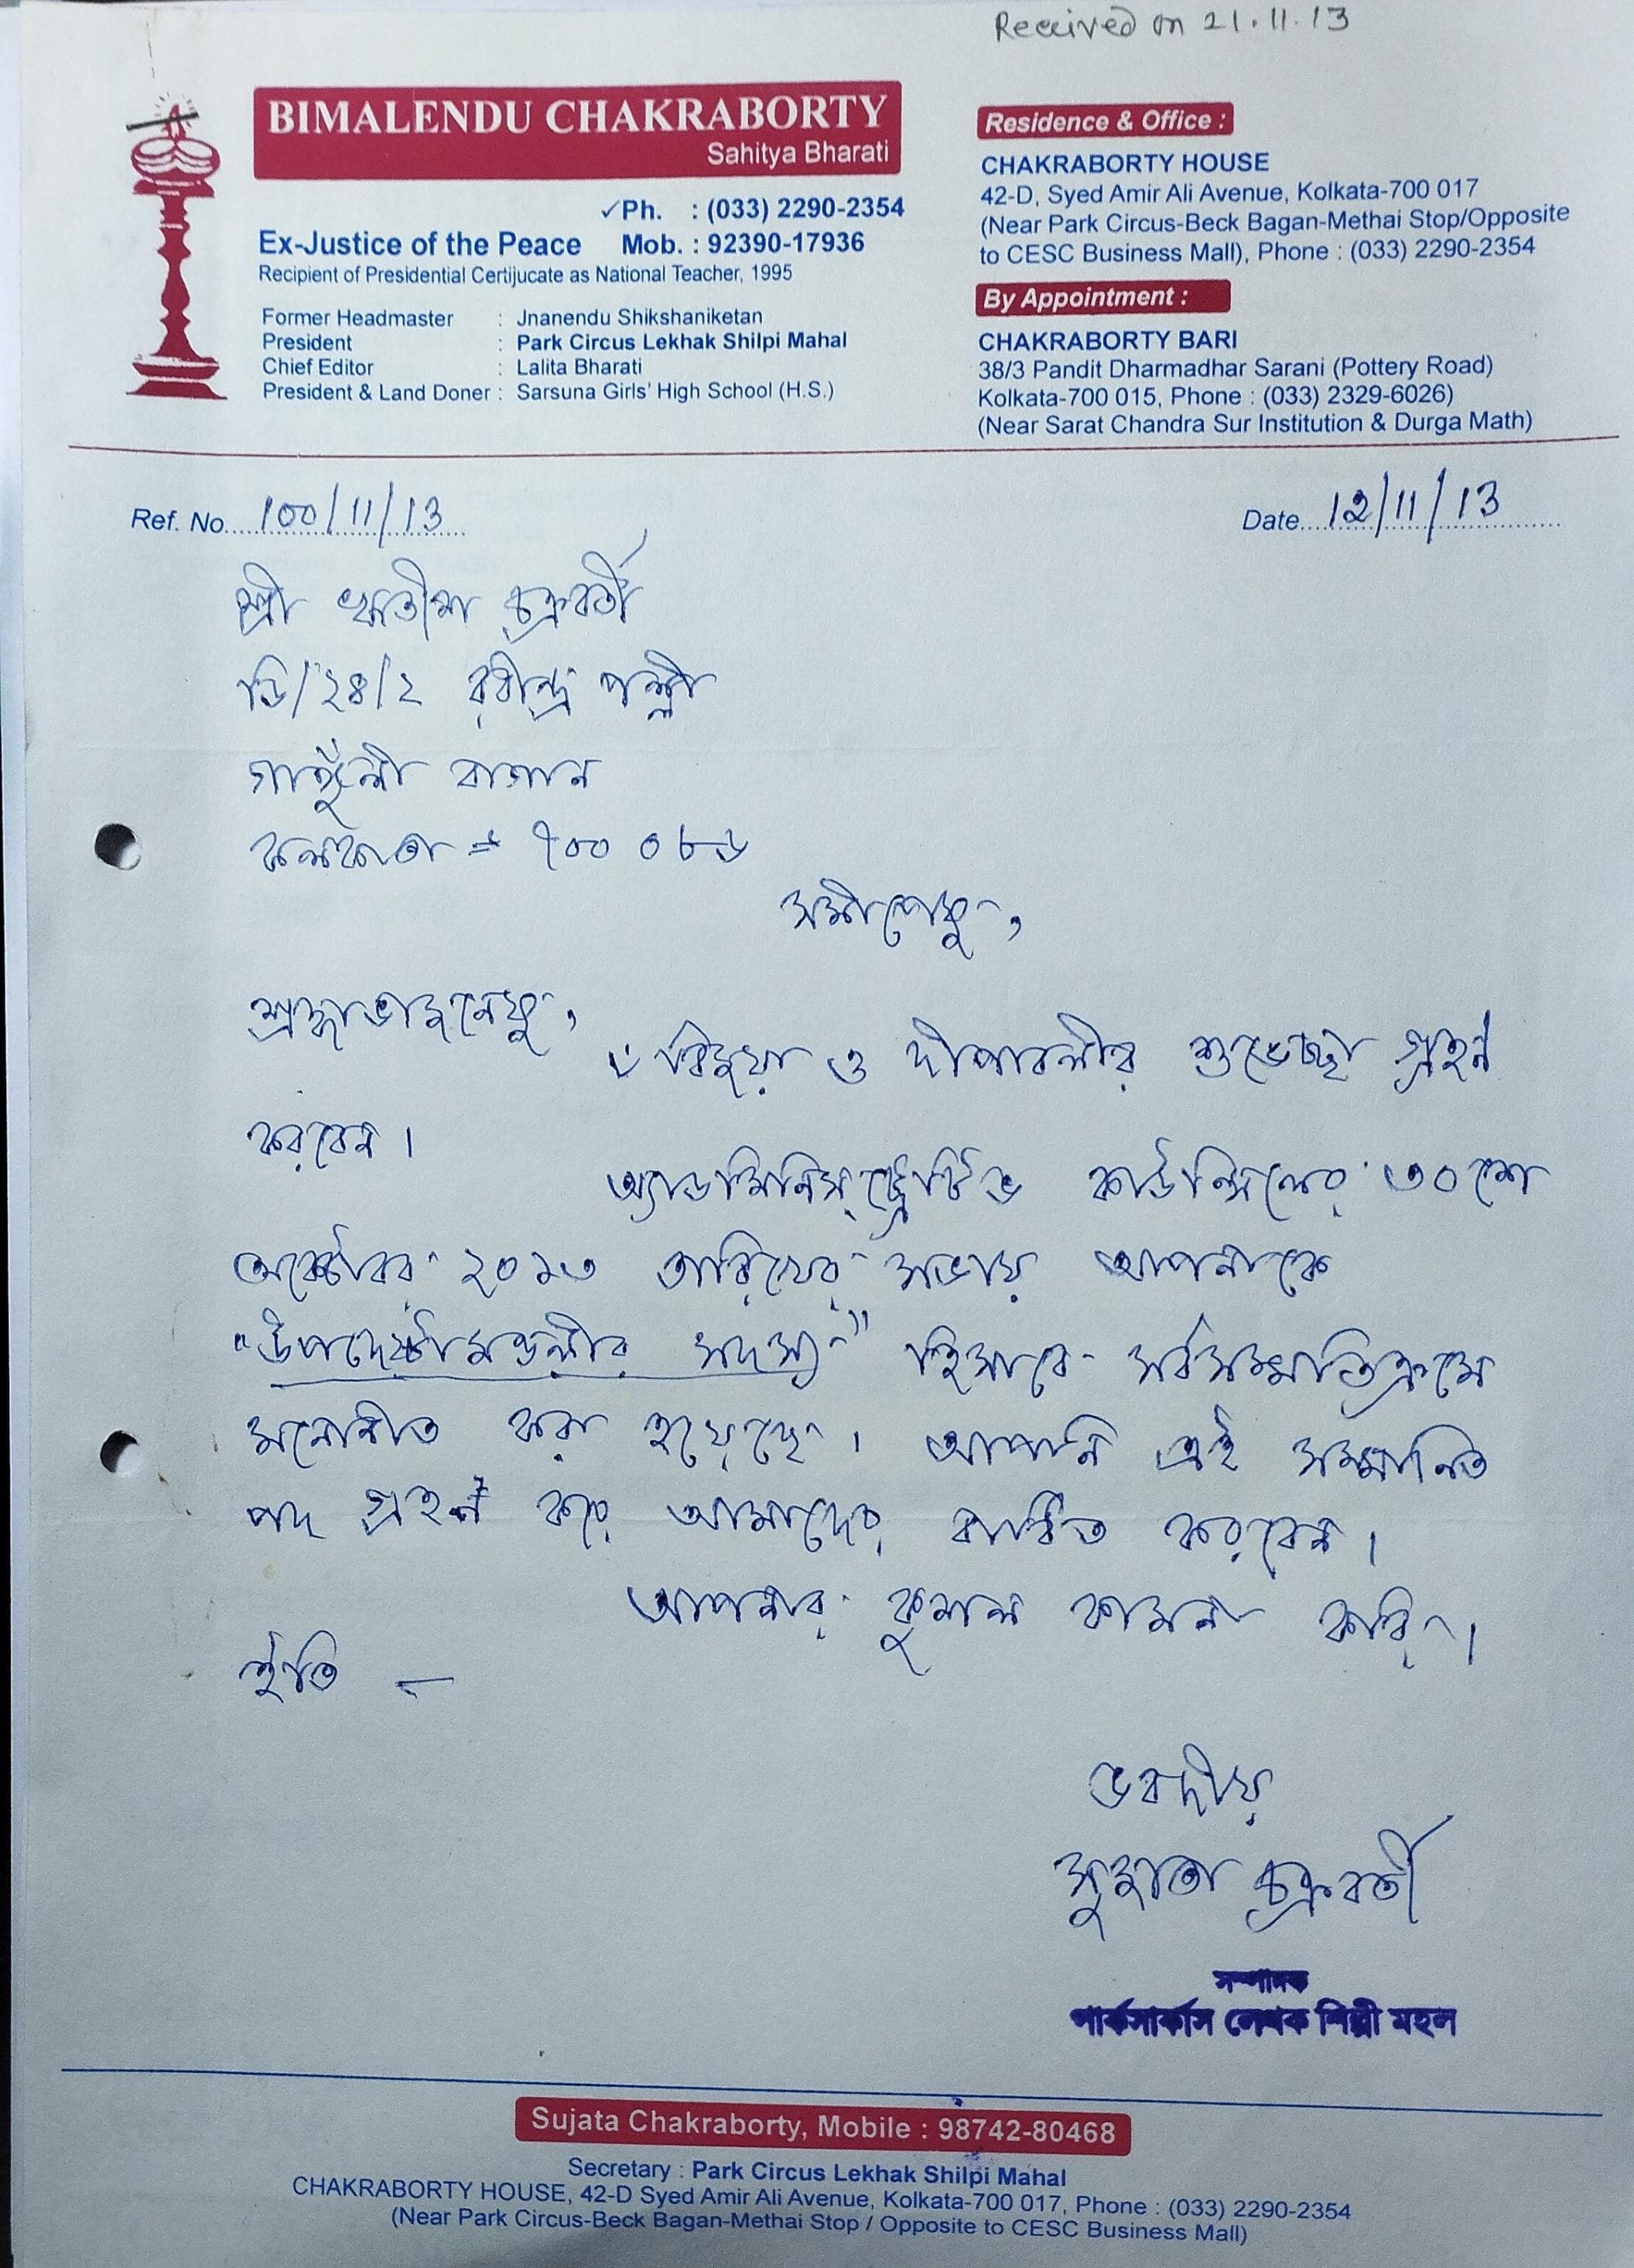 Received on 21.11.13
BIMALENDU CHAKRABORTY
Sahitya Bharati
✓Ph. : (033) 2290-2354
Ex-Justice of the Peace Mob. : 92390-17936
Recipient of Presidential Certijucate as National Teacher, 1995
Former Headmaster : Jnanendu Shikshaniketan
President : Park Circus Lekhak Shilpi Mahal
Chief Editor : Lalita Bharati
President & Land Doner : Sarsuna Girls' High School (H.S.)
Residence & Office :
CHAKRABORTY HOUSE
42-D, Syed Amir Ali Avenue, Kolkata-700 017
(Near Park Circus-Beck Bagan-Methai Stop/Opposite
to CESC Business Mall), Phone : (033) 2290-2354
By Appointment :
CHAKRABORTY BARI
38/3 Pandit Dharmadhar Sarani (Pottery Road)
Kolkata-700 015, Phone : (033) 2329-6026)
(Near Sarat Chandra Sur Institution & Durga Math)
Ref. No. 100/11/13
Date 12/11/13
শ্রী চক্রবর্তী
ডি/২৪/২ রবীন্দ্র পল্লী
গাঙ্গুলী বাগান
কলকাতা = ৭০০ ০৮৬
সমীপেষু,
শ্রদ্ধাভাজনেষু,
বিজয়া ও দীপাবলীর শুভেচ্ছা গ্রহণ
করবেন।
অ্যাডমিনিস্ট্রেটিভ কাউন্সিলের ৩০শে
অক্টোবর ২০১৩ তারিখের সভায় আপনাকে
"উপদেষ্টামণ্ডলীর সদস্য" হিসাবে সর্বসম্মতিক্রমে
মনোনীত করা হয়েছে। আপনি এই সম্মানিত
পদ গ্রহণ করে আমাদের বাধিত করবেন।
আপনার কুশল কামনা করি।
ইতি —
ভবদীয়
সুজাতা চক্রবর্তী
সম্পাদক
পার্কসার্কাস লেখক শিল্পী মহল
Sujata Chakraborty, Mobile : 98742-80468
Secretary : Park Circus Lekhak Shilpi Mahal
CHAKRABORTY HOUSE, 42-D Syed Amir Ali Avenue, Kolkata-700 017, Phone : (033) 2290-2354
(Near Park Circus-Beck Bagan-Methai Stop / Opposite to CESC Business Mall)